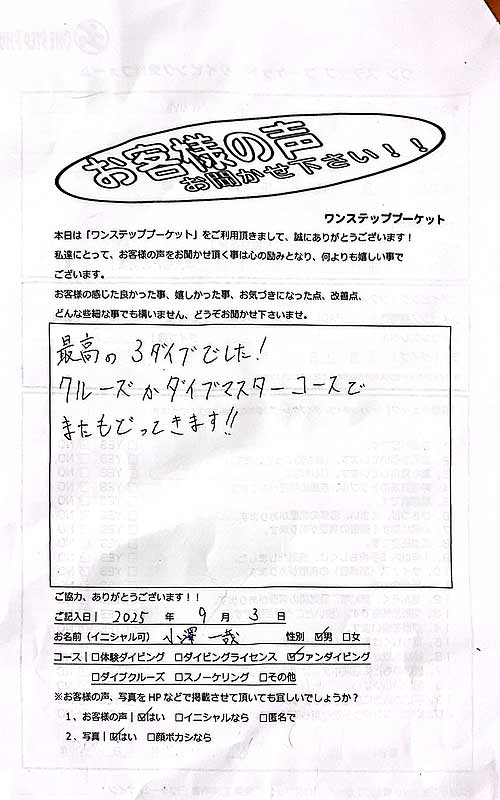 お客様の声
お聞かせ下さい！！
ワンステッププーケット
本日は「ワンステッププーケット」をご利用頂きまして、誠にありがとうございます！
私達にとって、お客様の声をお聞かせ頂く事は心の励みとなり、何よりも嬉しい事で
ございます。
お客様の感じた良かった事、嬉しかった事、お気づきになった点、改善点、
どんな些細な事でも構いません、どうぞお聞かせ下さいませ。
最高の3ダイブでした！
クルーズかダイブマスターコースで
またもどってきます!!
ご協力、ありがとうございます！！
ご記入日| 2025 年 9 月 3 日
お名前（イニシャル可） 小澤 一哉 性別 ☑男 □女
コース| □体験ダイビング □ダイビングライセンス ☑ファンダイビング
□ダイブクルーズ □スノーケリング □その他
※お客様の声、写真をHPなどで掲載させて頂いても宜しいでしょうか？
1、お客様の声| ☑はい □イニシャルなら □匿名で
2、写真| ☑はい □顔ボカシなら